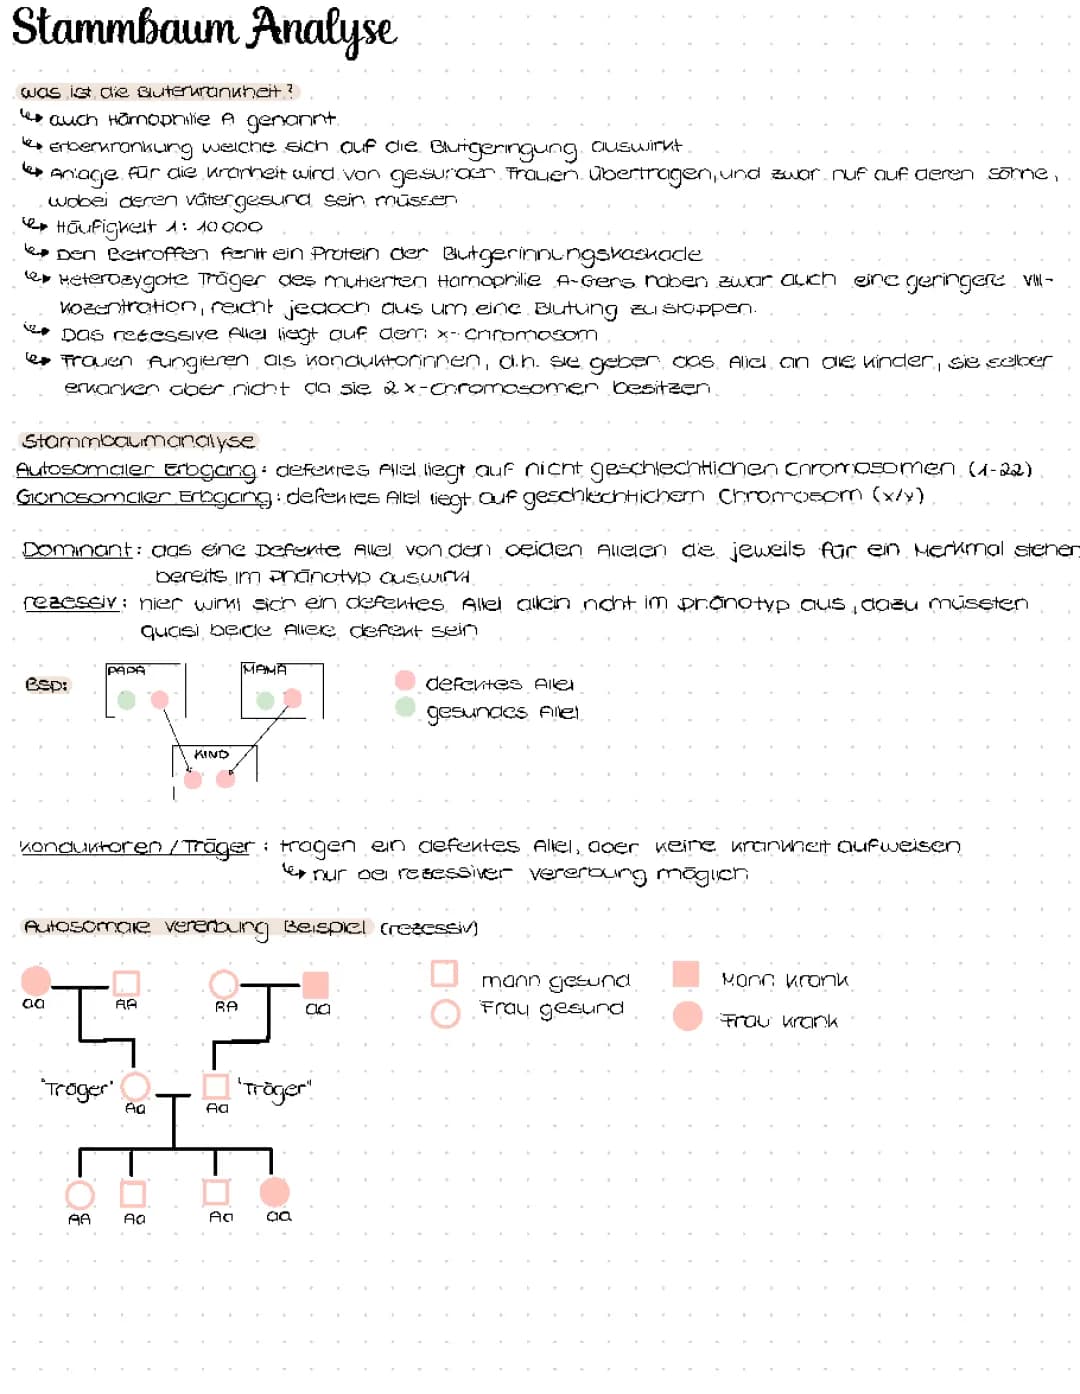 Stammbaum Analyse
was ist die Bluterkrankheit?
↳ auch Hämophilie A genannt
↳ Erberkrankung welche sich auf die Blutgeringung auswirkt
↳ Anlage für die Kranheit wird von gesunden Frauen übertragen, und zwar nur auf deren Söhne,
wobei deren Väter gesund sein müssen
↳ Häufigkeit 1: 10 000
↳ Den Betroffen fehlt ein Protein der Blutgerinnungskaskade
↳ Heterozygote Träger des mutierten Hämophilie A-Gens haben zwar auch eine geringere VIII-
Kozentration, reicht jedoch aus um eine Blutung zu stoppen.
↳ Das rezessive Allel liegt auf dem x-Chromosom
↳ Frauen fungieren als Konduktorinnen, d.h. sie geben das Allel an die Kinder, sie selber
erkanken aber nicht da sie 2 x-Chromosomen besitzen
Stammbaumanalyse
Autosomaler Erbgang: defektes Allel liegt auf nicht geschlechtlichen Chromosomen (1-22)
Gonosomaler Erbgang: defektes Allel liegt auf geschlechtlichem Chromosom (x/y)
Dominant: das eine Defekte Allel von den beiden Allelen die jeweils für ein Merkmal stehen
bereits im Phänotyp auswirkt
rezessiv: hier wirkt sich ein defektes Allel allein nicht im Phänotyp aus, dazu müssten
quasi beide Allele defekt sein
BSP:
PAPA MAMA
defektes Allel
gesundes Allel
KIND
Konduktoren / Träger: tragen ein defektes Allel, aber keine Krankheit aufweisen
↳ nur bei rezessiver Vererbung möglich
Autosomale Vererbung Beispiel (rezessiv)
mann gesund Mann krank
aa AA AA aa
Frau gesund Frau krank
"Träger" "Träger"
Aa Aa
AA Aa Aa aa